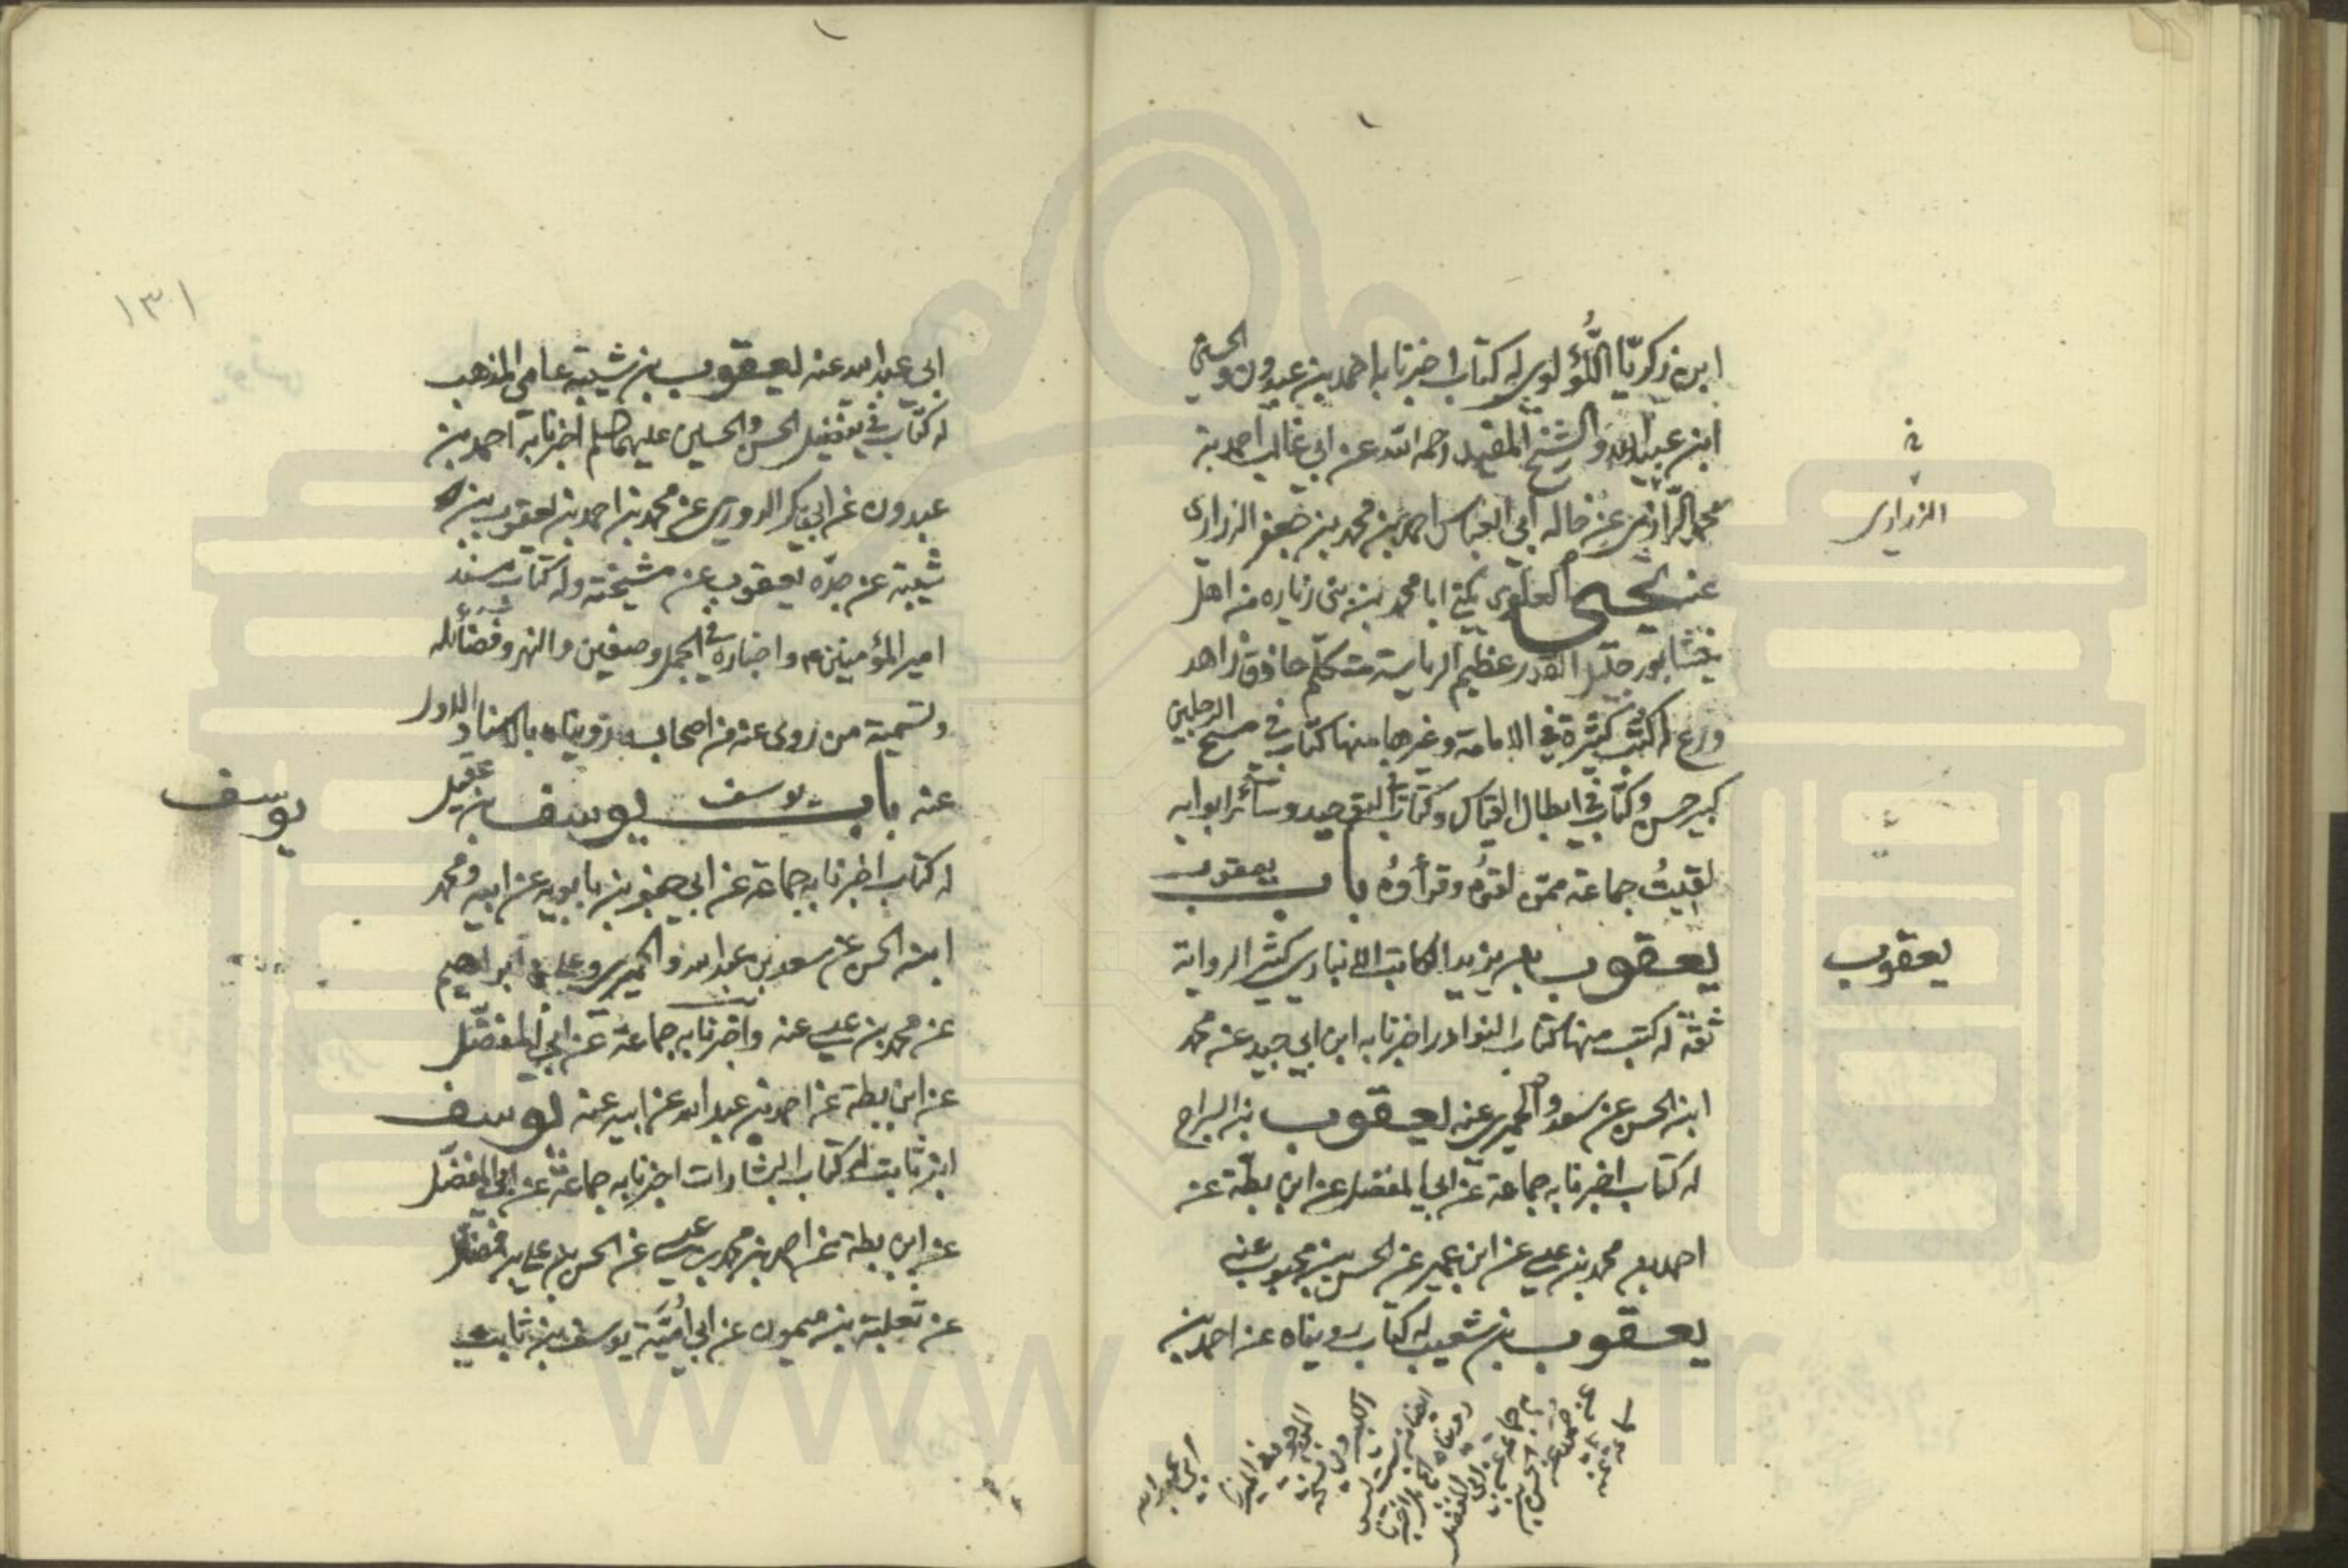 ابن زكريّا اللُّؤلوي له كتاب اخبرنا به احمد بن عبدون والحسين
ابن عبيد الله والشيخ المفيد رحمه الله عن ابي غالب احمد بن
محمد الزراري عن خاله ابي العباس احمد بن محمد بن جعفر الزراري
عنه يحيى العلوي يكنى ابا محمد من بني زياره من اهل
نيشابور جليل القدر عظيم الرياسة متكلّم حاذق زاهد
ورع له كتب كثيرة في الامامة وغيرها منها كتاب في مسح الرجلين
كبير حسن وكتاب في ابطال القياس وكتاب التوحيد وسائر ابوابه
لقيتُ جماعة ممّن لقوُه وقرأوُه باب يعقوب
يعقوب بن يزيد الكاتب الانباري كثير الرواية
ثقة له كتب منها كتاب النوادر اخبرنا به ابن ابي جيد عن محمد
ابن الحسن عن سعد والحميري عنه يعقوب بن السراج
له كتاب اخبرنا به جماعة عن ابي المفضل عن ابن بطّة عن
احمد بن محمد بن عيسى عن ابن عمير عن الحسن بن محبوب عنه
يعقوب بن شعيب له كتاب رويناه عن احمد بن
ابي عبد الله
الزراري
يعقوب
١٣١
ابي عبد الله عنه يعقوب بن شيبة عامي المذهب
له كتاب في تفضيل الحسن والحسين عليهما السلم اخبرنا به احمد بن
عبدون عن ابي بكر الدوري عن محمد بن احمد بن يعقوب بن
شيبة عن جدّه يعقوب عن مشيخته وله كتاب مسند
امير المؤمنين م واخباره في الجمل وصفين والنهر وفضائله
وتسمية من روى عنه من اصحابه رويناه بالاسناد الاول
عنه باب يوسف يوسف بن عقيل
له كتاب اخبرنا به جماعة عن ابي جعفر بن بابويه عن ابيه ومحمد
ابن الحسن عن سعد بن عبد الله والحميري وعلي بن ابراهيم
عن محمد بن عيسى عنه واخبرنا به جماعة عن ابي المفضّل
عن ابن بطة عن احمد بن عبد الله عن ابيه عنه يوسف
ابن ثابت له كتاب البشارات اخبرنا به جماعة عن ابي المفضّل
عن ابن بطة عن احمد بن محمد بن عيسى عن الحسن بن علي بن فضال
عن ثعلبة بن ميمون عن ابي اُميّة يوسف بن ثابت
يوسف